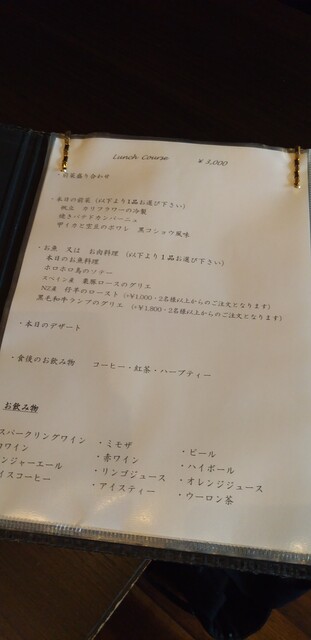 Lunch Course ￥3,000
・前菜盛り合わせ
・本日の前菜 (以下より1品お選び下さい)
帆立 カリフラワーの冷製
焼きパテドカンパーニュ
ザイカと空豆のポワレ 黒コショウ風味
・お魚 又は お肉料理 (以下より1品お選び下さい)
本日のお魚料理
ホロホロ鳥のソテー
スペイン産 栗豚ロースのグリエ
NZ産 仔羊のロースト (+￥1,000・2名様以上からのご注文となります)
黒毛和牛ランプのグリエ (+￥1,800・2名様以上からのご注文となります)
・本日のデザート
・食後のお飲み物 コーヒー・紅茶・ハーブティー
お飲み物
スパークリングワイン ・ミモザ ・ビール
白ワイン ・赤ワイン ・ハイボール
ンジャーエール ・リンゴジュース ・オレンジジュース
イスコーヒー ・アイスティー ・ウーロン茶